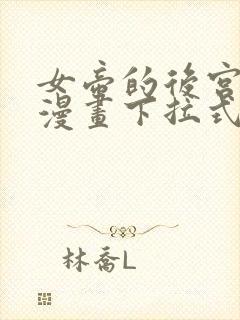 女帝的後宮
漫畫下拉式
林喬L